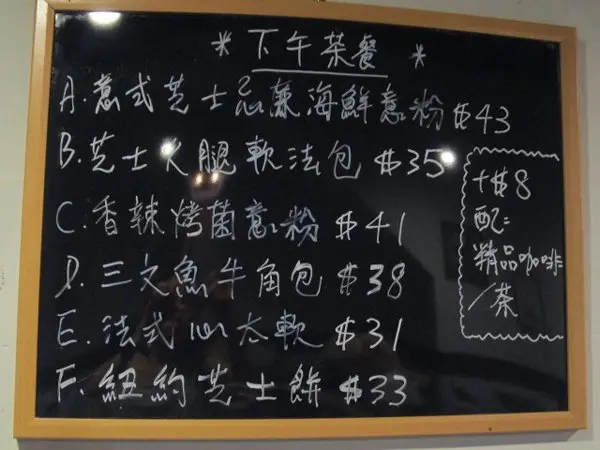 * 下午茶餐 *
A. 意式芝士忌廉海鮮意粉 $43
B. 芝士火腿軟法包 $35
C. 香辣烤菌意粉 $41
D. 三文魚牛角包 $38
E. 法式心太軟 $31
F. 紐約芝士餅 $33
+$8
配:
精品咖啡
/茶